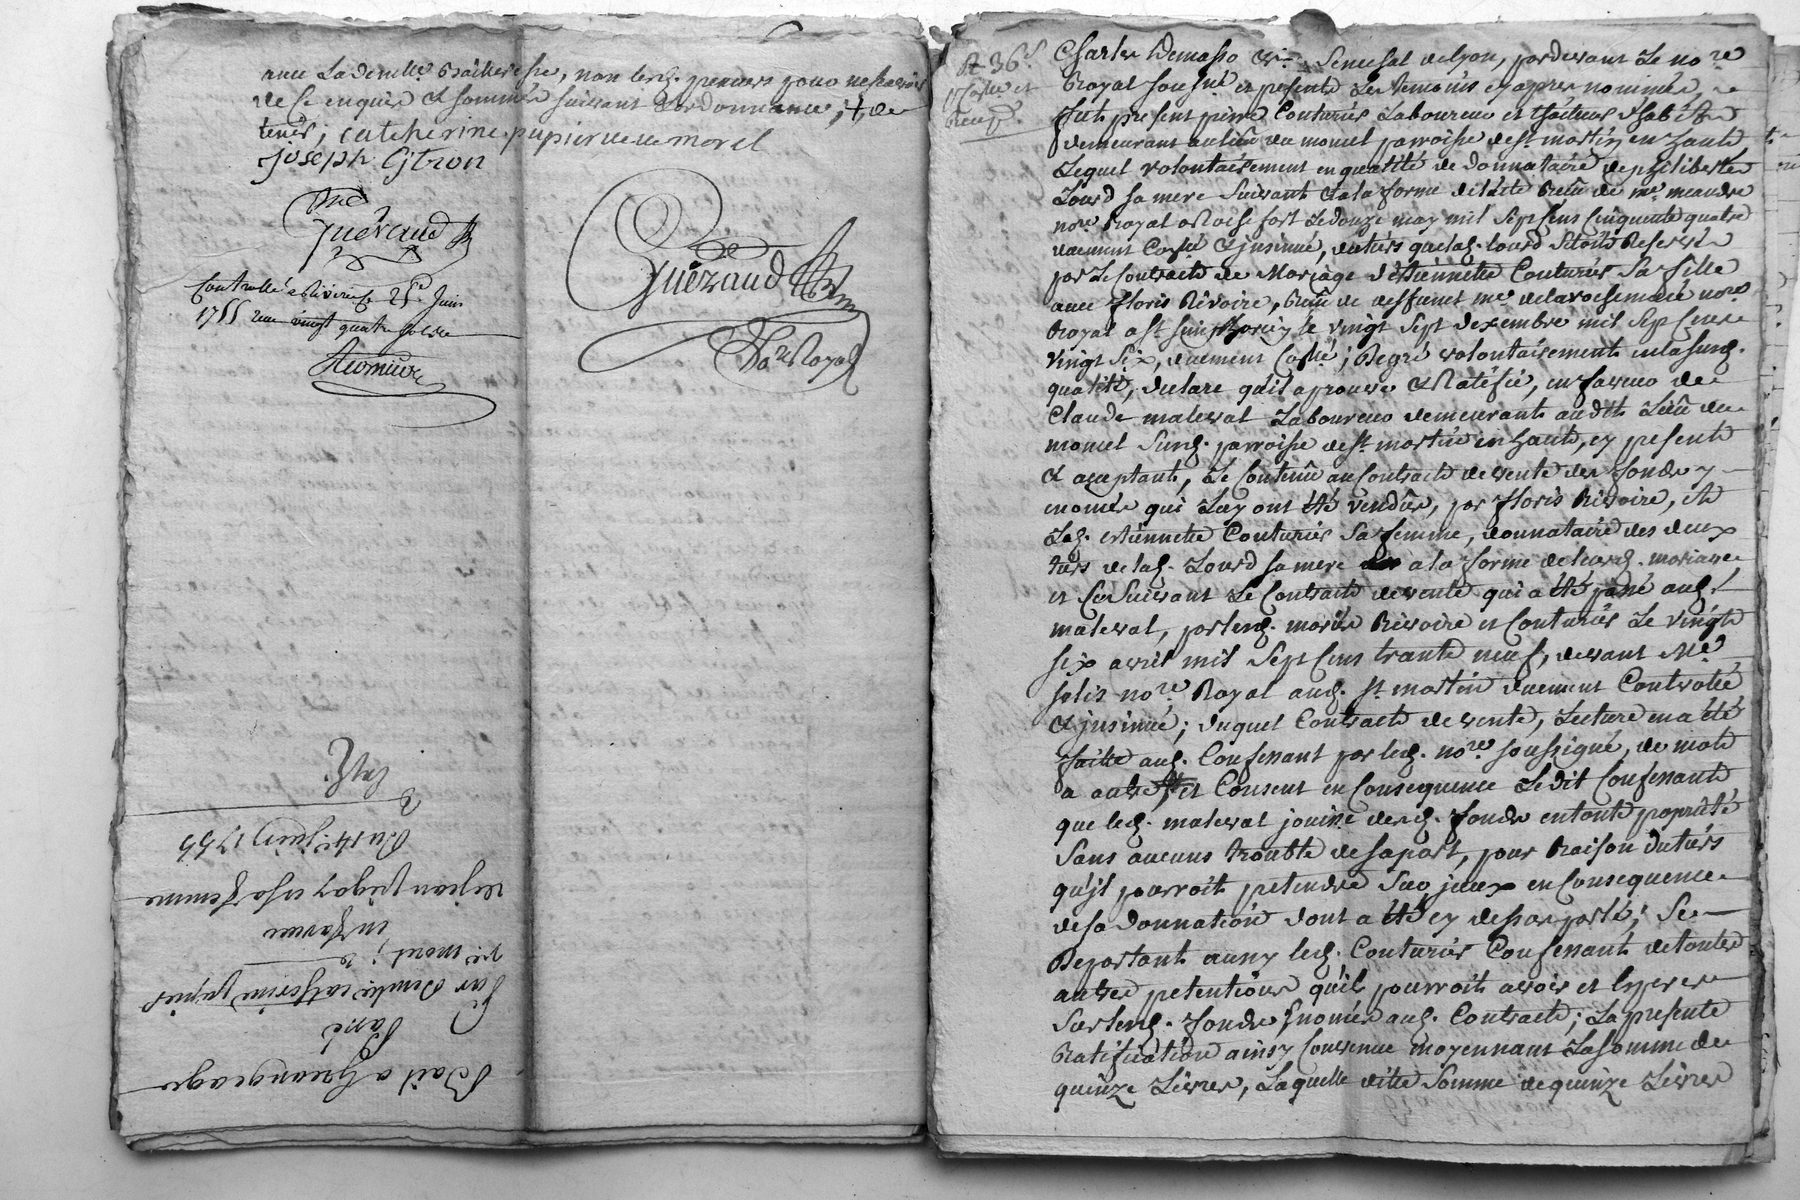 avec La demelle Bailleresse, non lesd. preneurs pour ne scavoir
de ce enquis et sommés suivant L'ordonnance; +, de
tenir; catcherine pupier veuve morel
joseph Gtron
Guéraud
Guéraud
No.re Royal
Controllé a Riverie le 25e Juin
1755 Reçu vingt quatre sols
Bail a Grangeage
Passé
Par demlle catherine pupier
ve morel; a
en faveur
de jean pigay et sa femme
Du 14e juin 1755
Charles Demasso Senechal de Lyon, pardevant Le no.re
Royal sousné et presents Les temoins cy apres nommés,
fut present pierre Couturier Laboureur et
demeurant au lieu du mouel parroisse de st martin en haute
Lequel volontairement en qualité de donnataire de philiberte
Lourd sa mere suivant et a la forme de l'acte Reçu de me meandre
nore Royal a Rochefort Le douze may mil sept cens cinquante quatre
duement Coñllé & jnsinué, du tiers que lad. Lourd s'étoit Reservé
par Le Contract de Mariage d'Etiennette Couturier Sa fille
avec floris Rivoire, Reçu de deffunct me delarochemacé nore
Royal a st simphorien le vingt sept decembre mil sept cens
vingt six, duement Coñllé; De gré volontairement en lasusd.
qualité, declare qu'il aprouve & Ratiffie, en faveur de
Claude maleval Laboureur demeurant audit Lieu du
mouel susd. parroisse de st martin en haute, cy present
& acceptant, Le Contenû au Contract de vente des fonds y
enomés qui Luy ont été vendûs, par floris Rivoire, et
Lad. etiennette Couturier Sa femme, donnataire des deux
tiers de lad. Lourd sa mere a la forme de leurd. mariage
et Ce Suivant Le Contract de vente qui a été passé aud.
maleval, par lesd. mariés Rivoire et Couturier Le vingt
six avril mil sept cens trante neuf, devant Me
nore Royal aud. st. martin duement Controllé
& jnsinué; duquel Contract de vente, Lecture en a été
faitte aud. Confessant par led. nore soussigné, de mot
a autre, et Consent en Consequence Ledit Confessant
que led. maleval jouisse desd. fonds en toute propriété
Sans aucuns trouble de sa part, pour Raison du tiers
qu'jl pourroit pretendre Sur jceux en Consequence
de sa donnation dont a été cy dessus parlé; Se
Departant aussy led. Couturier Confessant de toutes
autres pretentions qu'il pourroit avoir et
Sur lesd. fonds enomés aud. Contract; La presente
Ratiffication ainsy Convenue moyennant La somme de
quinze Livres, Laquelle ditte Somme de quinze Livres